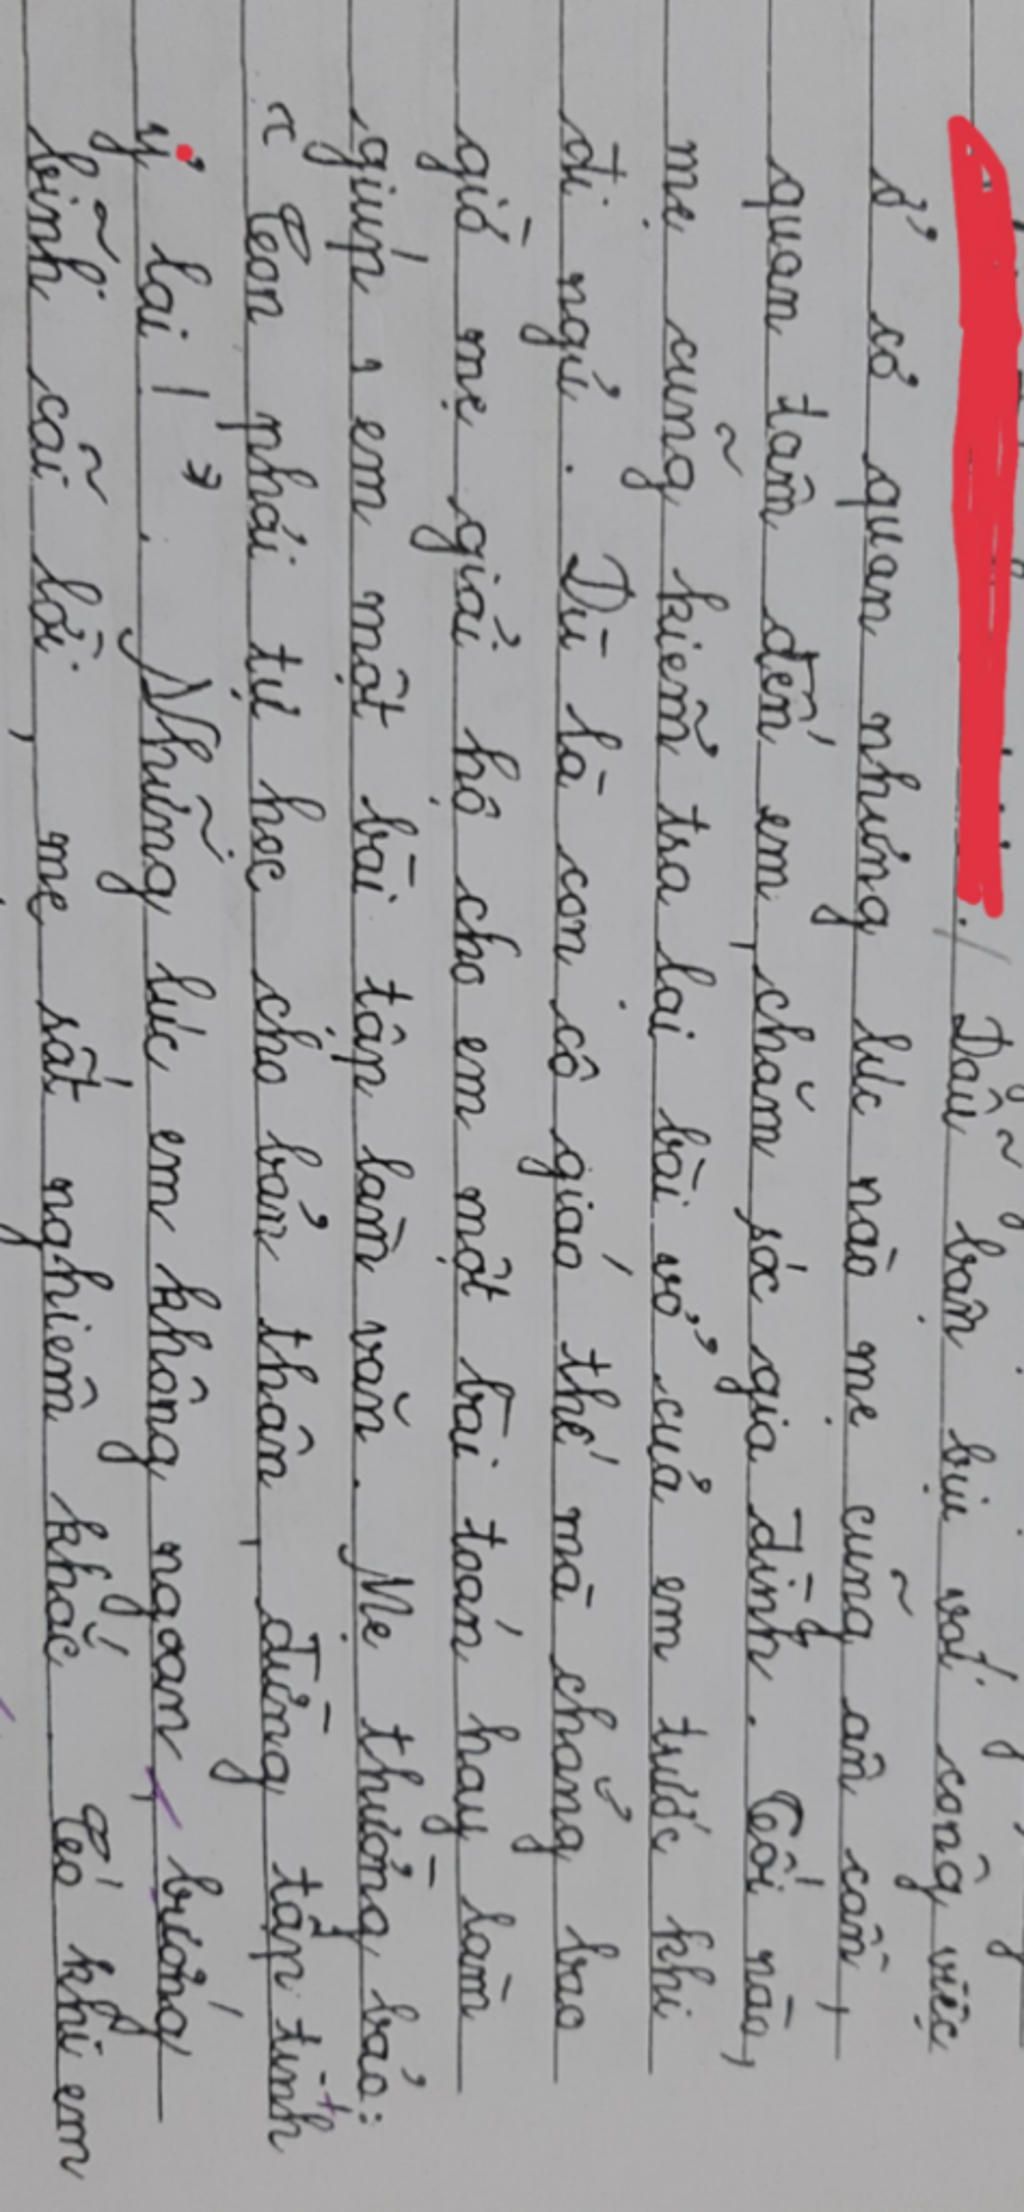 Dẫu bận bịu với công việc
ở cơ quan nhưng lúc nào mẹ cũng ân cần,
quan tâm đến em, chăm sóc gia đình. Tối nào,
mẹ cũng kiểm tra lại bài vở của em trước khi
đi ngủ. Dù là con cô giáo thế mà chẳng bao
giờ mẹ giải hộ cho em một bài toán hay làm
giúp, em một bài tập làm văn. Mẹ thường bảo:
"Con phải tự học cho bản thân, đừng tập tính
ỷ lại!". Những lúc em không ngoan, bướng
bỉnh cãi lời, mẹ rất nghiêm khắc. Có khi em